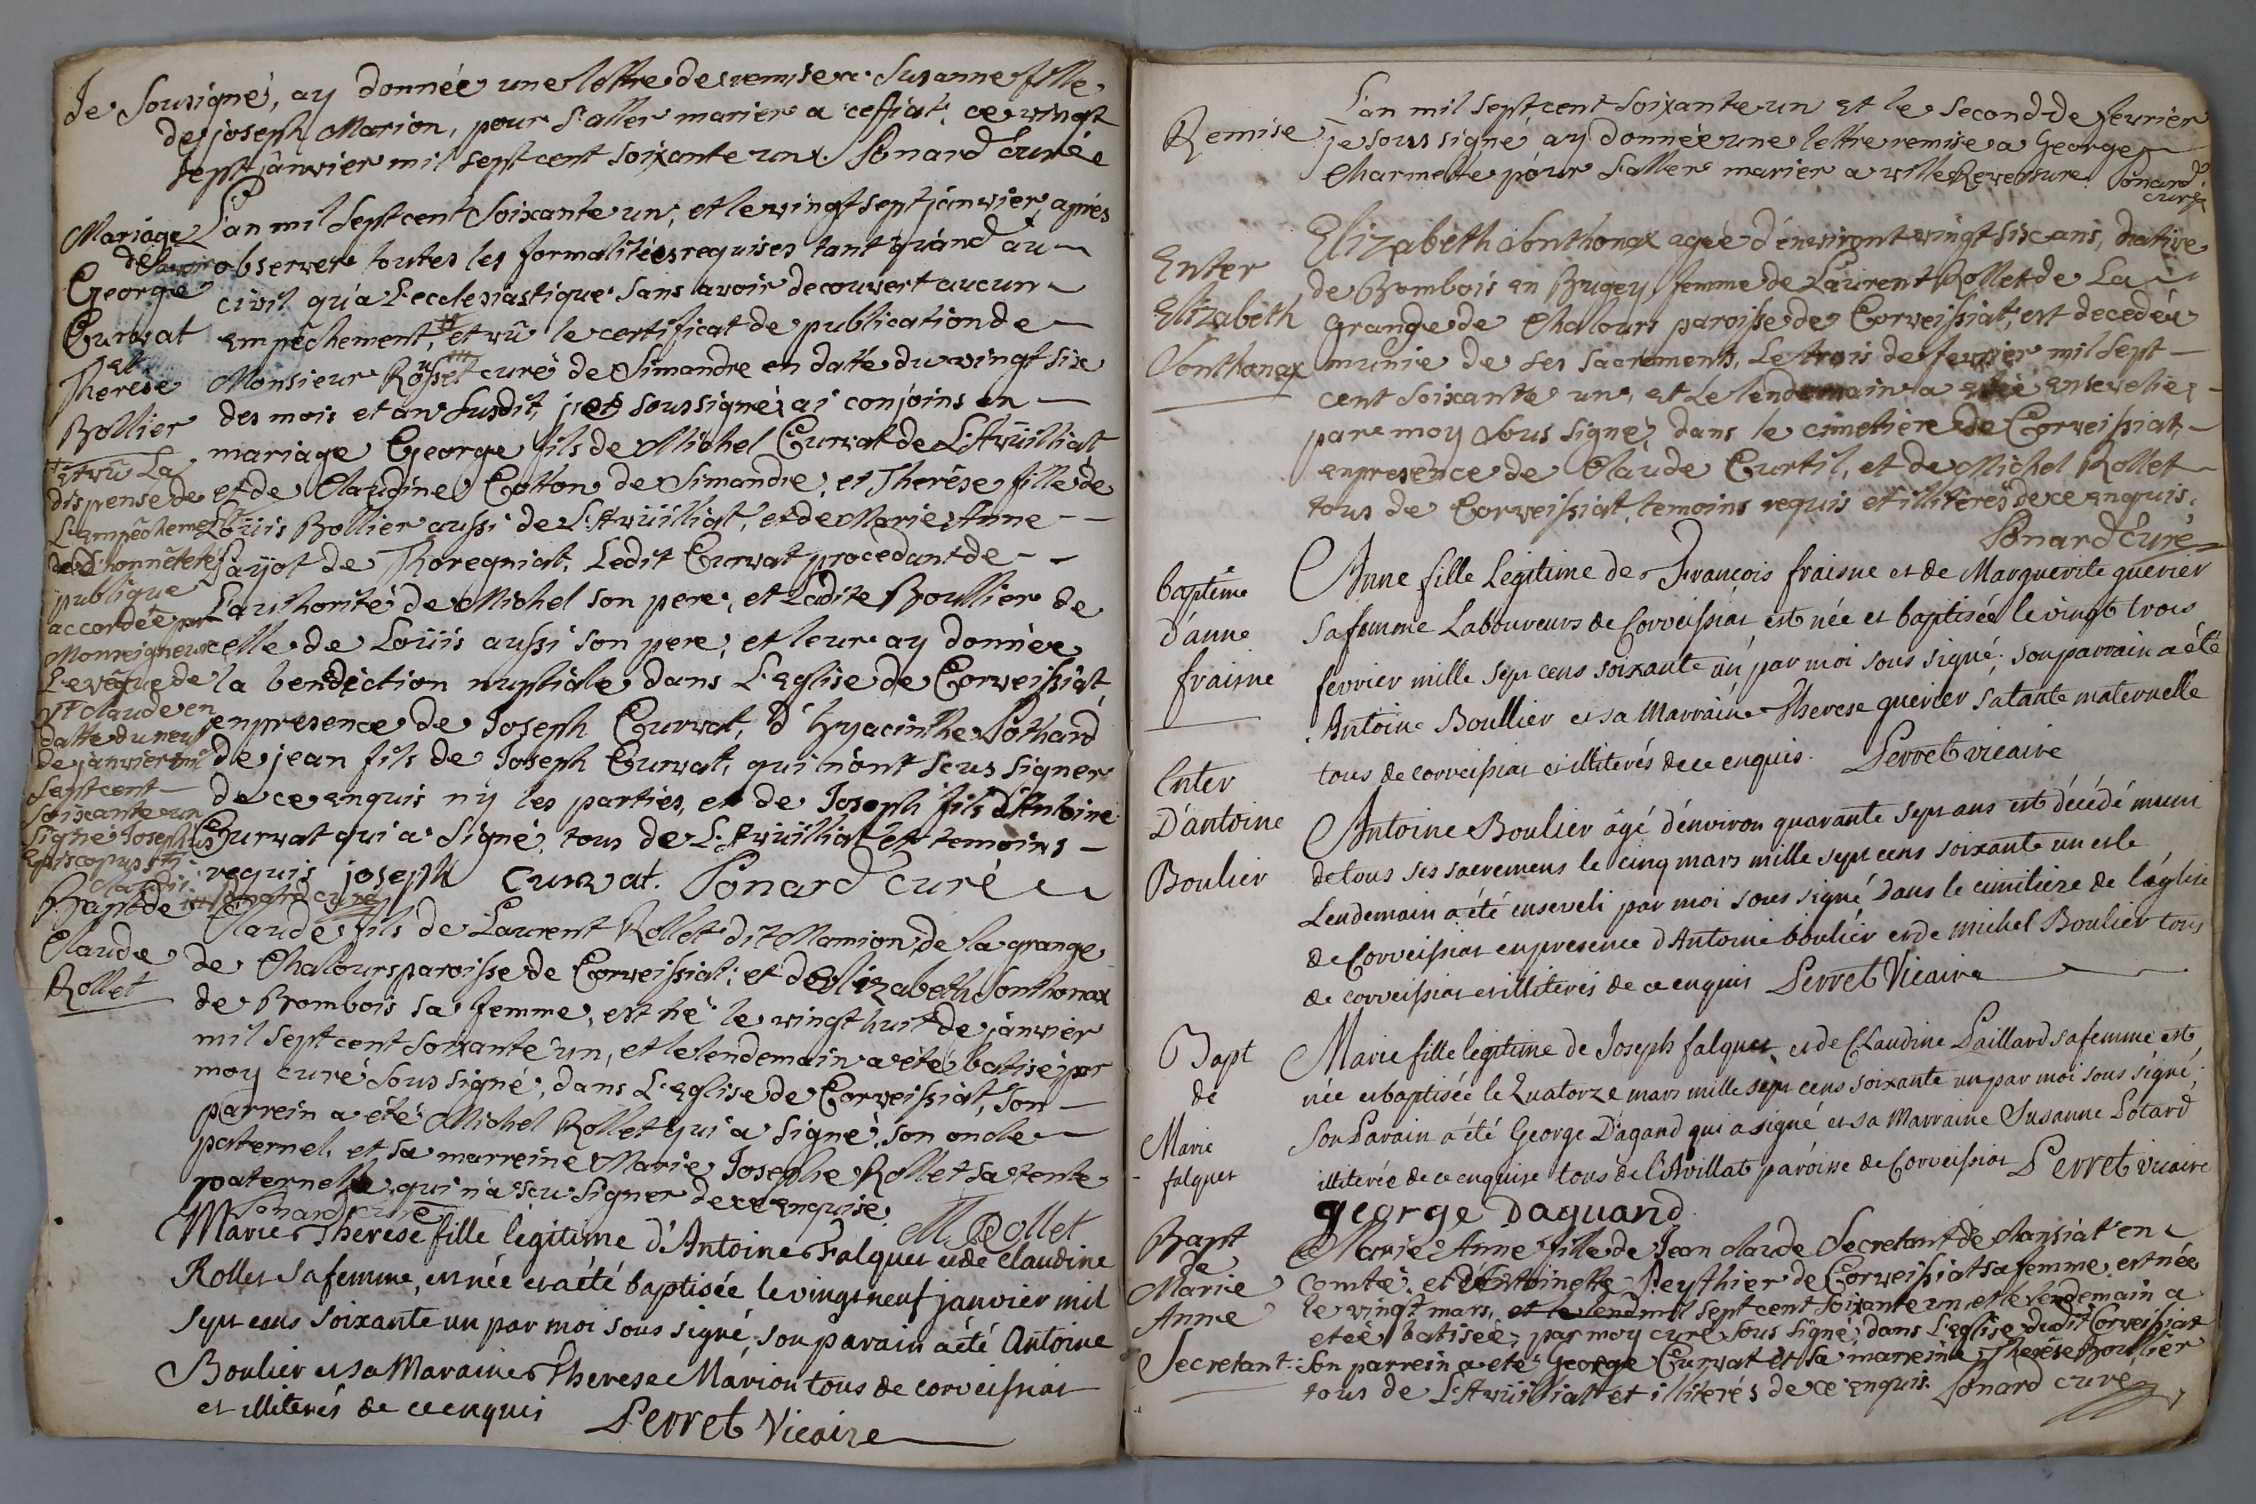 Je Sousigné, ay donnée une lettre de remise a Susanne fille
de joseph Marion, pour s'aller marier a ceffiat, ce vingt
sept janvier mil sept cent soixante un. Ponard curé
Mariage
de
George
Curvat
et
Therese
Bollier
L'an mil sept cent soixante un, et le vingt sept janvier, aprés
avoir observer toutes les formalitées requises tant quand au
civil qu'a l'ecclesiastique sans avoir decouvert aucun
empêchement, et vû le certificat de publication de
Monsieur Rosset curé de Simandre en datte du vingt six
des mois et an susdit, je soussigné ai conjoins en
mariage George fils de Michel Curvat de L'Avüilliat
et de Claudine Cotton de Simandre, et Therése fille de
Loüis Bollier aussi de L'Avüilliat, et de Marie Anne
Payot de Thoregniat, Ledit Curvat procedant de
L'authorité de Michel son pere, et Ladite Boullier de
celle de Loüis aussi son pere, et leur ay donnée
la benediction nuptiale dans L'Eglise de Corveissiat,
en presence de Joseph Curvat, d'hyacinthe Pothard
de jean fils de Joseph Curvat, qui n'ont sçus signer
de ce enquis n'y les parties, et de Joseph fils d'Antoine
Curvat qui a signé, tous de L'Avüilliat et temoins
requis joseph curvat. Ponard curé
et vû La
dispense de
L'empêchement
de L'honnêteté
publique
accordée par
Monseigneur
L'evêque de
St Claude en
datte du neuf
de janvier mil
sept cent
soixante un
signé Josephus
Episcopus sti
claudii
Ponard curé
Bapt de
Claude
Rollet
Claude fils de Laurent Rollet dit Mamion de la grange
de Chalours paroisse de Corveissiat, et d'Elizabeth Sonthonax
de Bombois sa femme, est né le vingt huit de janvier
mil sept cent soixante un, et le lendemain a été batisé par
moy curé sous signé, dans L'Eglise de Corveissiat, son
parrein a été Michel Rollet qui a signé, son oncle
paternel, et sa marreine Marie Josephe Rollet sa tente
paternelle, qui n'a sçu signer de ce enquise.
Ponard curé M Rollet
Marie Therese fille légitime d'Antoine Falquet et de Claudine
Rollet sa femme, est née et a été baptisée le vingt neuf janvier mil
sept cens soixante un par moi sous signé, son parain a été Antoine
Boulier et sa Maraine Therese Marion tous de corveissiat
et illiterés de ce enquis Perret Vicaire
Remise
L'an mil sept cent soixante un et le second de fevrier
je soussigné ay donnée une lettre remise a George
Charmette pour s'aller marier a ville Reversure. Ponard
curé
Enter
Elizabeth
Sonthonax
Elizabeth Sonthonax agée d'environt vingt six ans, native
de Bombois en Bugey, femme de Laurent Rollet de La
grange de Chalours paroisse de Corveissiat, est decedée
munie de ses sacrements, Le trois de fevrier mil sept
cent soixante un, et Le lendemain a esté ensevelie
par moy sous signé, dans le cimetiere de Corveissiat,
en presence de Claude Curtil, et de Michel Rollet
tous de Corveissiat, temoins requis et illiterés de ce enquis.
Ponard Curé
baptême
d'anne
fraisne
Anne fille Legitime de François fraisne et de Marguerite guerier
sa femme Laboureurs de Corveissiat est née et baptisée le vingt trois
fevrier mille sept cens soixante un par moi sous signé, son parrain a été
Antoine Boullier et sa Marraine Therese guerier sa tante maternelle
tous de corveissiat et illiterés de ce enquis. Perret vicaire
Enter
D'antoine
Boulier
Antoine Boulier âgé d'environ quarante sept ans est décédé muni
de tous ses sacremens le cinq mars mille sept cens soixante un et le
Lendemain a été enseveli par moi sous signé dans le cimitiere de l'église
de Corveissiat en presence d'Antoine boulier et de michel Boulier tous
de corveissiat et illiterés de ce enquis Perret Vicaire
Bapt
de
Marie
falquet
Marie fille legitime de Joseph falquet et de Claudine Paillard sa femme est
née et baptisée le Quatorze mars mille sept cens soixante un par moi sous signé,
son Parain a été George D'agand qui a signé et sa Marraine Susanne Potard
illiterée de ce enquise tous de l'Avillat paroisse de Corveissiat Perret vicaire
george Daguand
Bapt
de
Marie
Anne
Secretant
Marie Anne fille de Jean claude Secretant de Mansiat en
comté, et d'Antoinette Peythier de Corveissiat sa femme, est née
le vingt mars, et le lend mil sept cent soixante un, et le lendemain a
eteé batiseé, par moy curé sous signé, dans L'eglise dudit Corveissiat
son parrein a eté George Curvat et sa marreine Therése Boullier
tous de L'Avüilliat et illiterés de ce enquis. Ponard curé